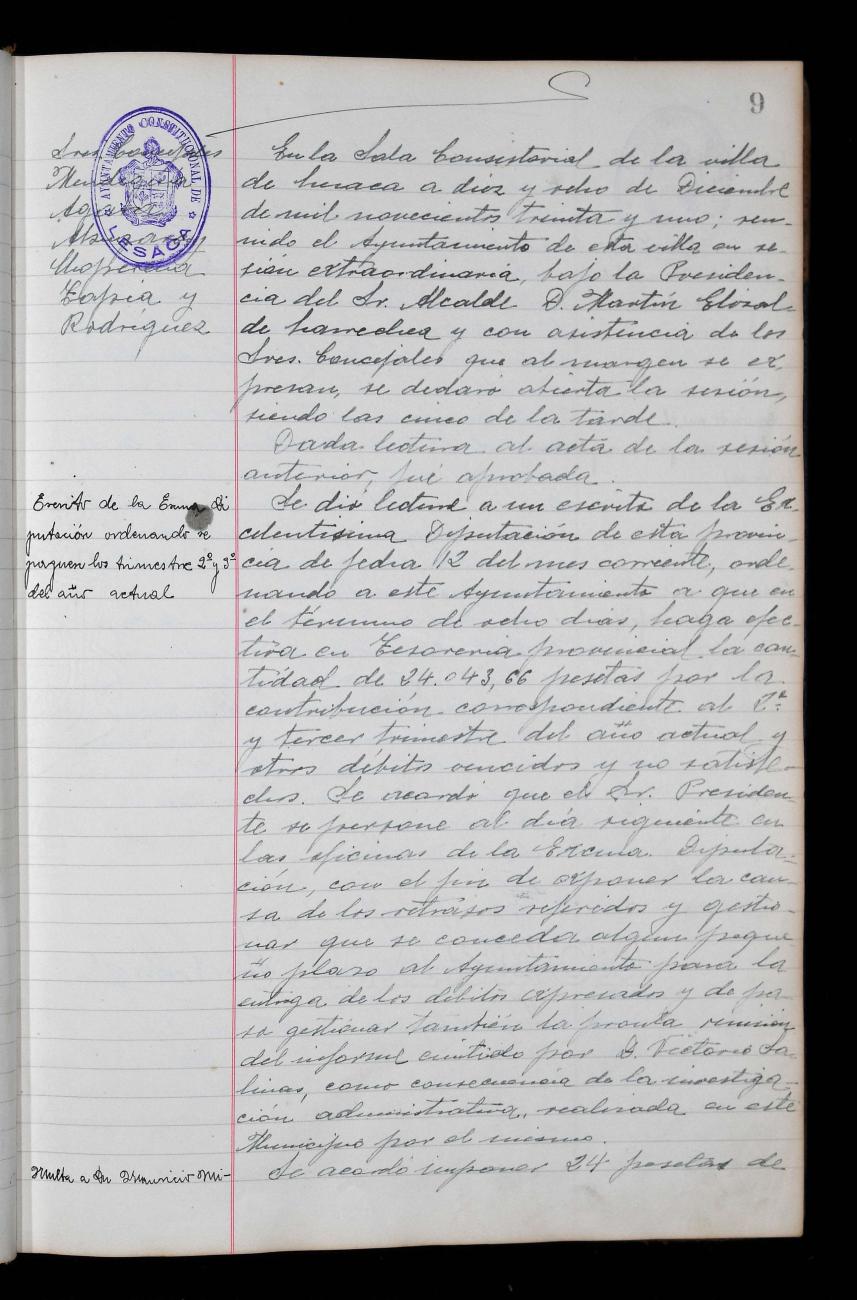 9
AYUNTAMIENTO CONSTITUCIONAL DE
LESACA
Sres. Concejales
Mendiguia
y
Tapia y
Rodríguez
En la Sala Consistorial de la villa
de Lesaca a diez y ocho de Diciembre
de mil novecientos treinta y uno; reu-
nido el Ayuntamiento de esta villa en se-
sión extraordinaria, bajo la Presiden-
cia del Sr. Alcalde D. Martín Elizal-
de Larrechea y con asistencia de los
Sres. Concejales que al margen se ex-
presan, se declaró abierta la sesión,
siendo las cinco de la tarde.
Dada lectura al acta de la sesión
anterior, fué aprobada.
Escrito de la Excma Di
putación ordenando se
paguen los trimestre 2º y 3º
del año actual
Se dió lectura a un escrito de la Ex-
celentísima Diputación de esta provin-
cia de fecha 12 del mes corriente, orde-
nando a este Ayuntamiento a que en
el término de ocho días, haga efec-
tiva en Tesorería provincial la can-
tidad de 24.043,66 pesetas por la
contribución correspondiente al 2º
y tercer trimestre del año actual y
otros débitos vencidos y no satisfe-
chos. Se acordó que el Sr. Presiden-
te se persone al día siguiente en
las oficinas de la Excma. Diputa-
ción, con el fin de exponer la cau-
sa de los retrasos referidos y gestio-
nar que se conceda algun peque
ño plazo al Ayuntamiento para la
entrega de los débitos expresados y de pa-
so gestionar también la pronta remisión
del informe emitido por D. Victorio Sa-
linas, como consecuencia de la investiga-
ción administrativa, realizada en este
Municipio por el mismo.
Multa a Dn Mauricio Mi-
Se acordó imponer 24 pesetas de